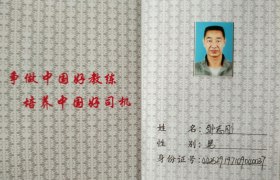 争做中国好教练
培养中国好司机
姓 名:
性 别: 男
身份证号: